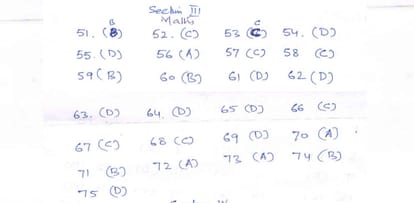 Section III
Maths
B C
51. (B) 52. (C) 53 (C) 54. (D)
55. (D) 56 (A) 57 (C) 58 (C)
59 (B) 60 (B) 61 (D) 62 (D)
63. (D) 64. (D) 65 (D) 66 (C)
67 (C) 68 (C) 69 (D) 70 (A)
71 (B) 72 (A) 73 (A) 74 (B)
75 (D)